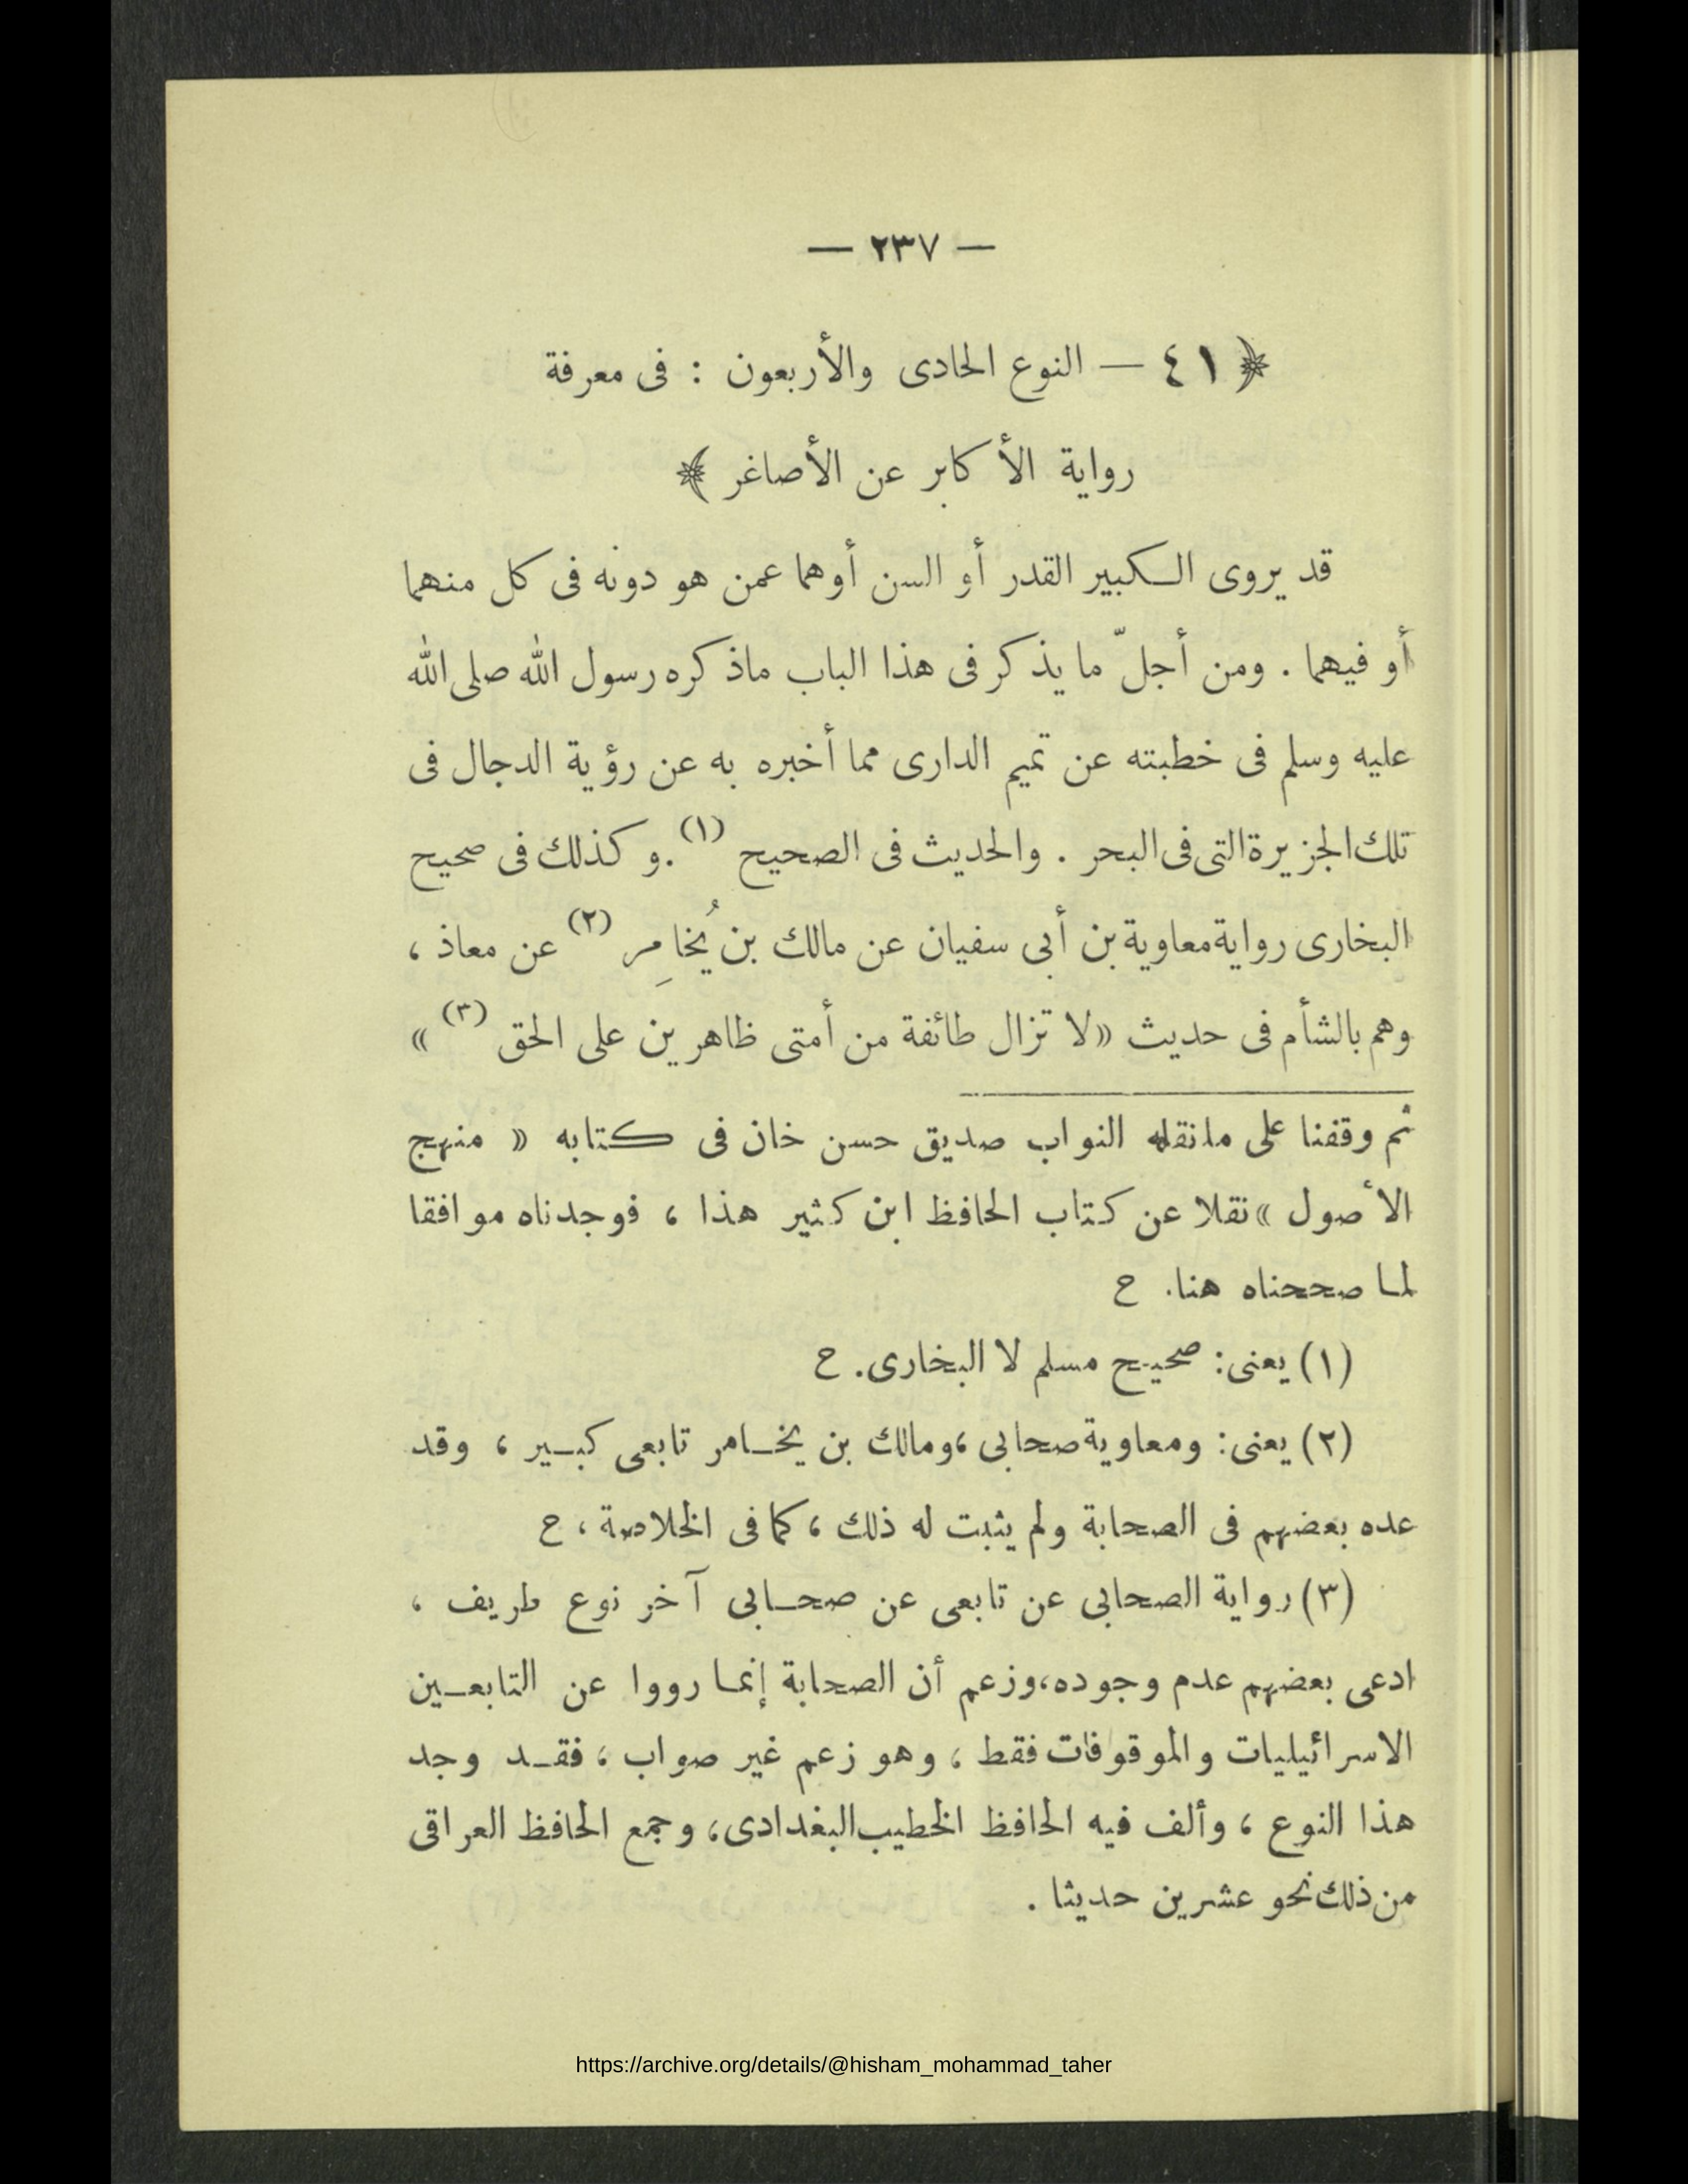 — ٢٣٧ —
﴿ ٤١ — النوع الحادى والأربعون : فى معرفة
رواية الأكابر عن الأصاغر ﴾
قد يروى الكبير القدر أو السن أوهما عمن هو دونه فى كل منهما
أو فيهما . ومن أجلّ ما يذكر فى هذا الباب ماذكره رسول الله صلى الله
عليه وسلم فى خطبته عن تميم الدارى مما أخبره به عن رؤية الدجال فى
تلك الجزيرة التى فى البحر . والحديث فى الصحيح (١) . وكذلك فى صحيح
البخارى رواية معاوية بن أبى سفيان عن مالك بن يُخامِر (٢) عن معاذ ،
وهم بالشأم فى حديث «لا تزال طائفة من أمتى ظاهرين على الحق (٣) »
ثم وقفنا على مانقله النواب صديق حسن خان فى كتابه « منهج
الأصول » نقلا عن كتاب الحافظ ابن كثير هذا ، فوجدناه موافقا
لما صححناه هنا. ح
(١) يعنى: صحيح مسلم لا البخارى. ح
(٢) يعنى: ومعاوية صحابى ،ومالك بن يخامر تابعى كبير ، وقد
عده بعضهم فى الصحابة ولم يثبت له ذلك ، كما فى الخلاصة ، ح
(٣) رواية الصحابى عن تابعى عن صحابى آخر نوع طريف ،
ادعى بعضهم عدم وجوده،وزعم أن الصحابة إنما رووا عن التابعين
الاسرائيليات والموقوفات فقط ، وهو زعم غير صواب ، فقد وجد
هذا النوع ، وألف فيه الحافظ الخطيب البغدادى، وجمع الحافظ العراقى
من ذلك نحو عشرين حديثا .
https://archive.org/details/@hisham_mohammad_taher